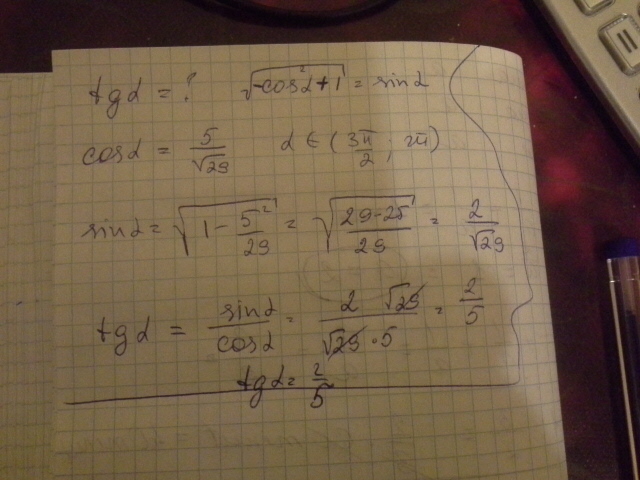 tgα = ? √(-cos²α+1) = sinα
cosα = 5/√29 α ∈ (3π/2 ; 2π)
sinα = √(1 - 5²/29) = √((29-25)/29) = 2/√29
tgα = sinα/cosα = (2 √29)/(√29 · 5) = 2/5
tgα = 2/5